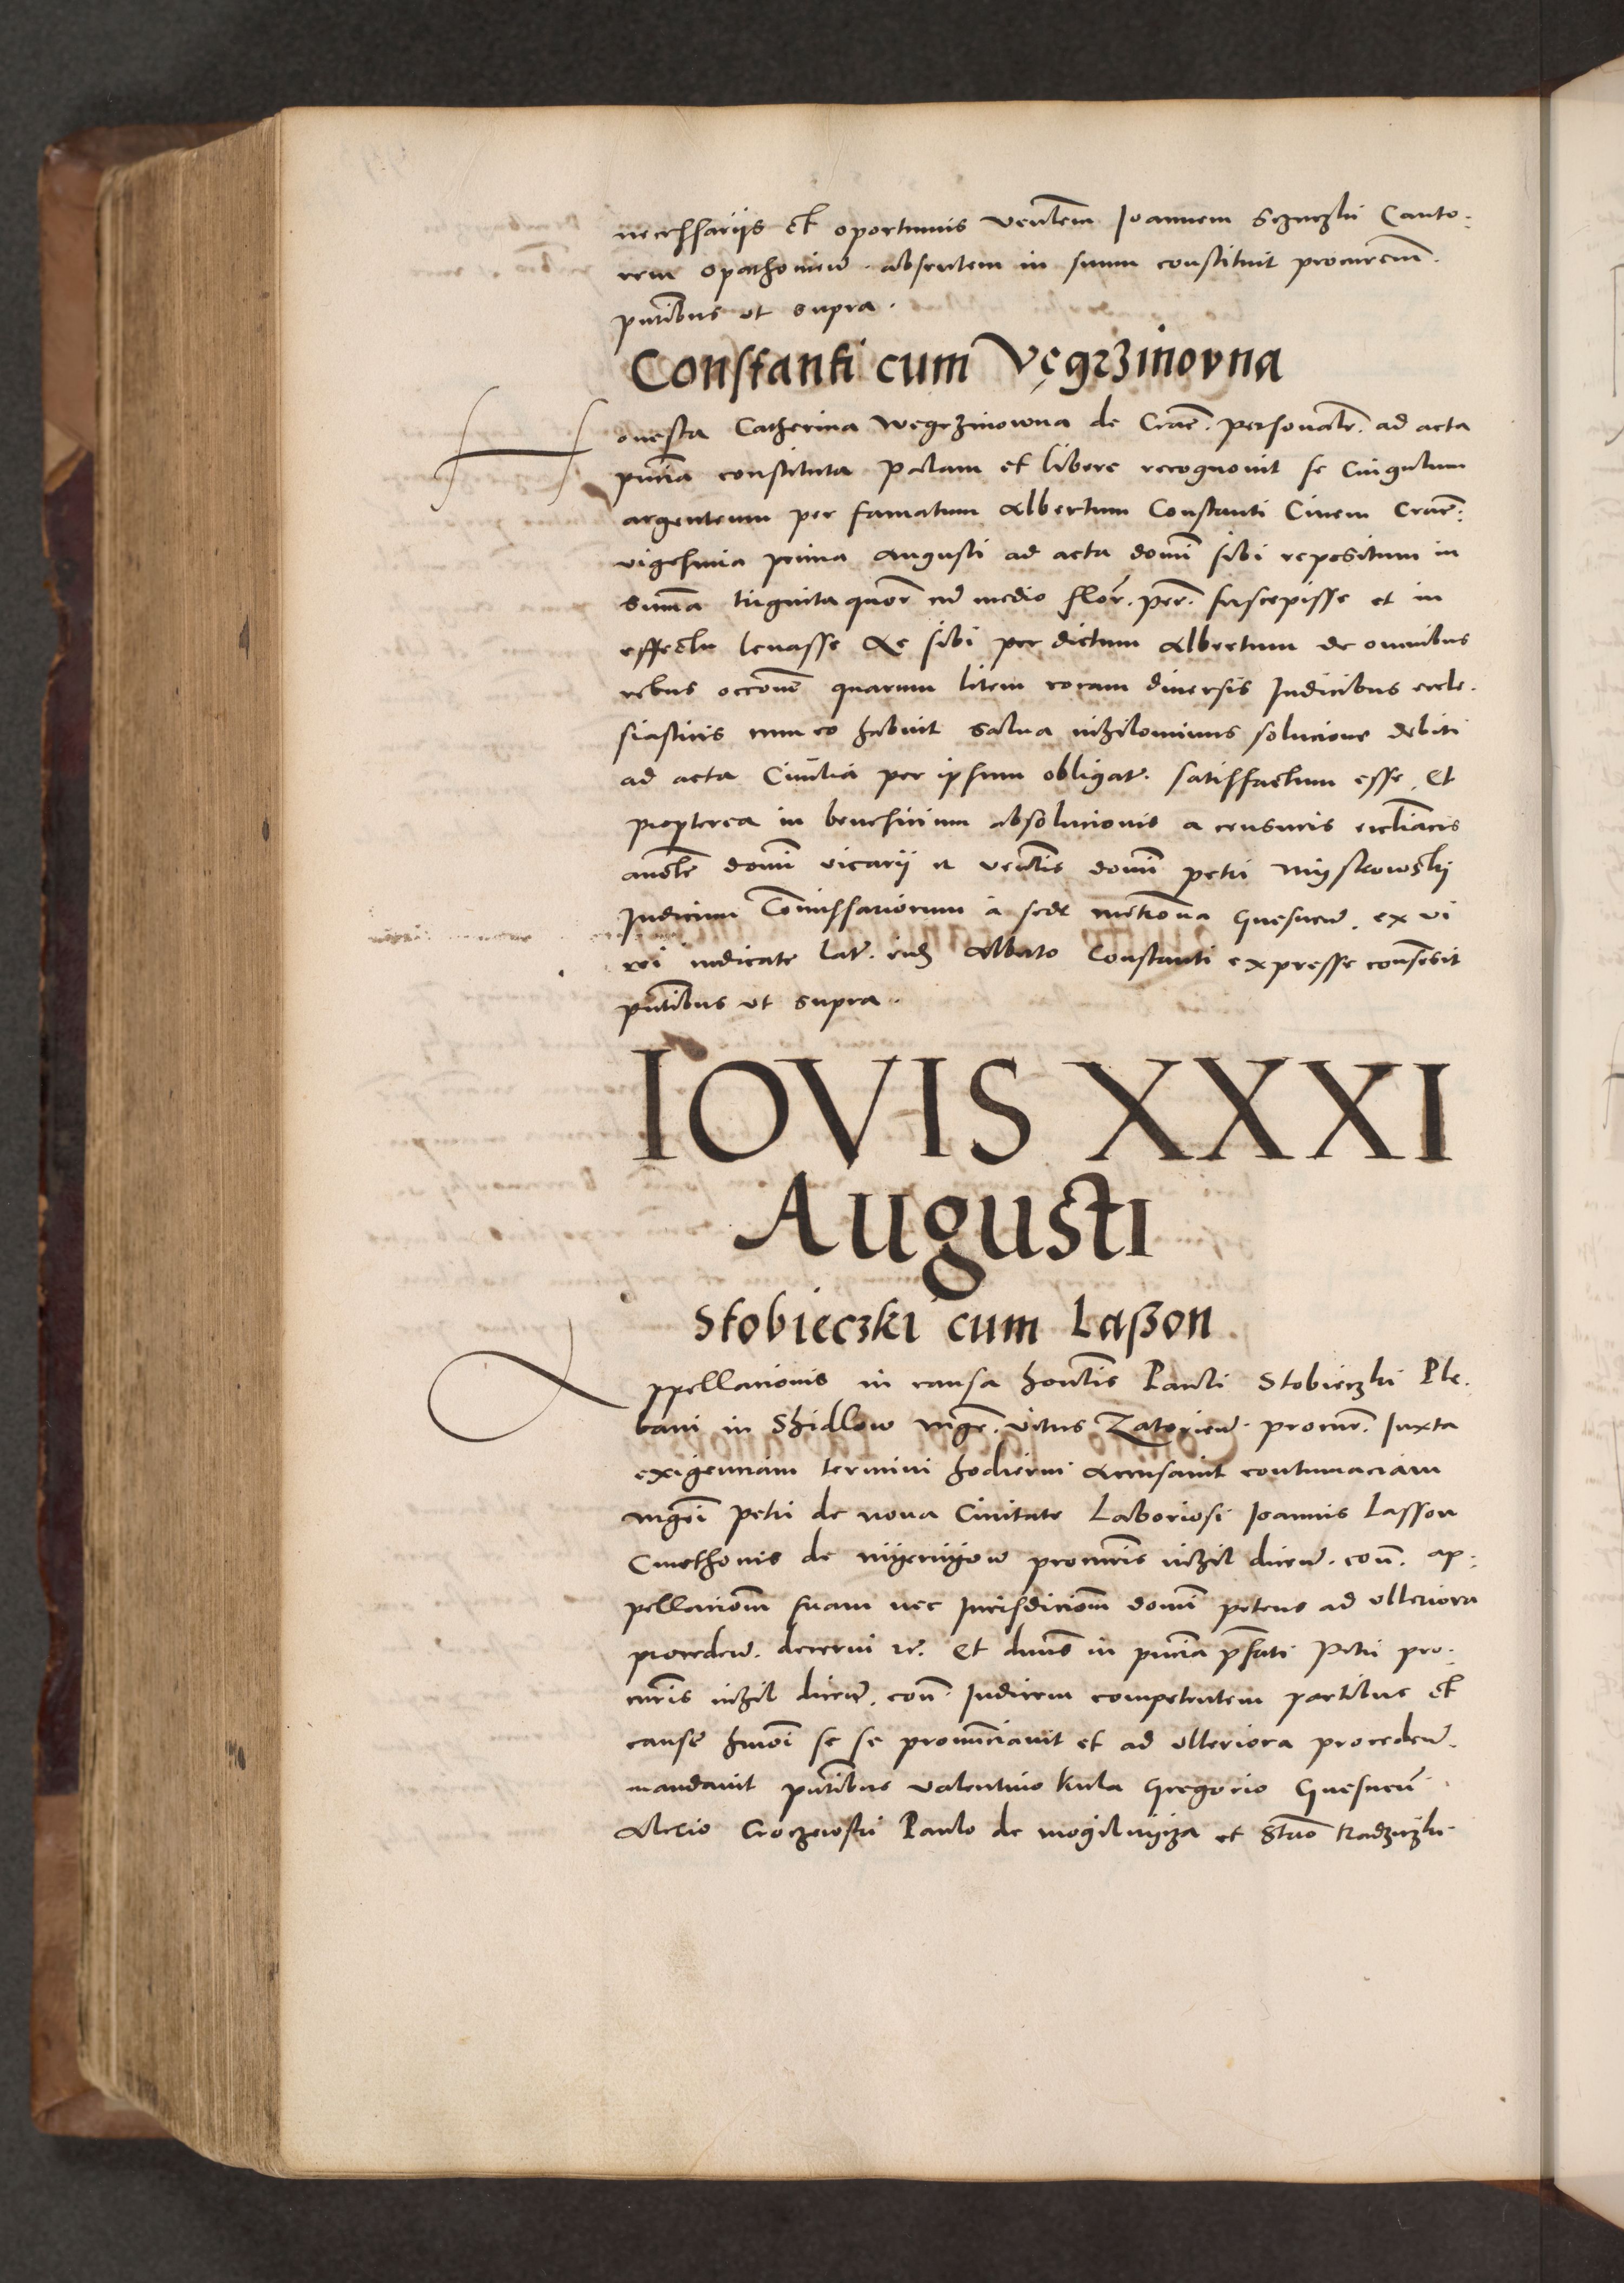 necessariis et oportunis venlem Ioannem Sczuczki Canto-
rem Opathonien. absentem in suum constituit procurem.
pntibus ut supra.
Constanti cum Vęgrzinovna
Honesta Catherina Wegrzinowna de Crac. personalr. ad acta
pncia constituta palam et libere recognovit se Cingulum
argenteum per famatum Albertum Constanti Civem Crac.
vigesima prima Augusti ad acta domi sibi repositum in
summa triginta quor cum medio flor. per. suscepisse et in
effectu levasse Ac sibi per dictum Albertum de omnibus
rebus occone quarum litem coram diversis Iudicibus eccle-
siasticis cum eo habuit salva nihilominus solucione debiti
ad acta Civilia per ipsum obligat. satisfactum esse, Et
propterea in beneficium absolucionis a censuris eccliacis
aucte domi vicarii et venlis domi Petri Myskowsky
Iudicum Comissariorum a sede metrona Gnesnen. ex vi
rei iudicate lat. eidem Albto Constanti expresse consesit
pntibus ut supra.
IOVIS XXXI
Augusti
Stobieczki cum Laßon
Appellacionis in causa honlis Pauli Stobieczki Ple-
bani in Szidlow mgr. Vitus Zatorien. procur. Iuxta
exigenciam termini hodierni Accusavit contumaciam
mgri Petri de nova Civitate Laboriosi Ioannis Lasson
Cmethonis de procuris nihil dicen. con. ap-
pellaciom suam nec Iurisdiciom domi petens ad ulteriora
proceden. decerni etc. Et dnus in pncia pfati Petri pro-
curis nihil dicen. con. Iudicem competentem partibus et
cause hmoi se se pronunciavit et ad ulteriora proceden.
mandavit pntibus Valentino Kula Gregorio Gnesnen.
Alexio Paulo de Mogilnicza et Stao Radziczki